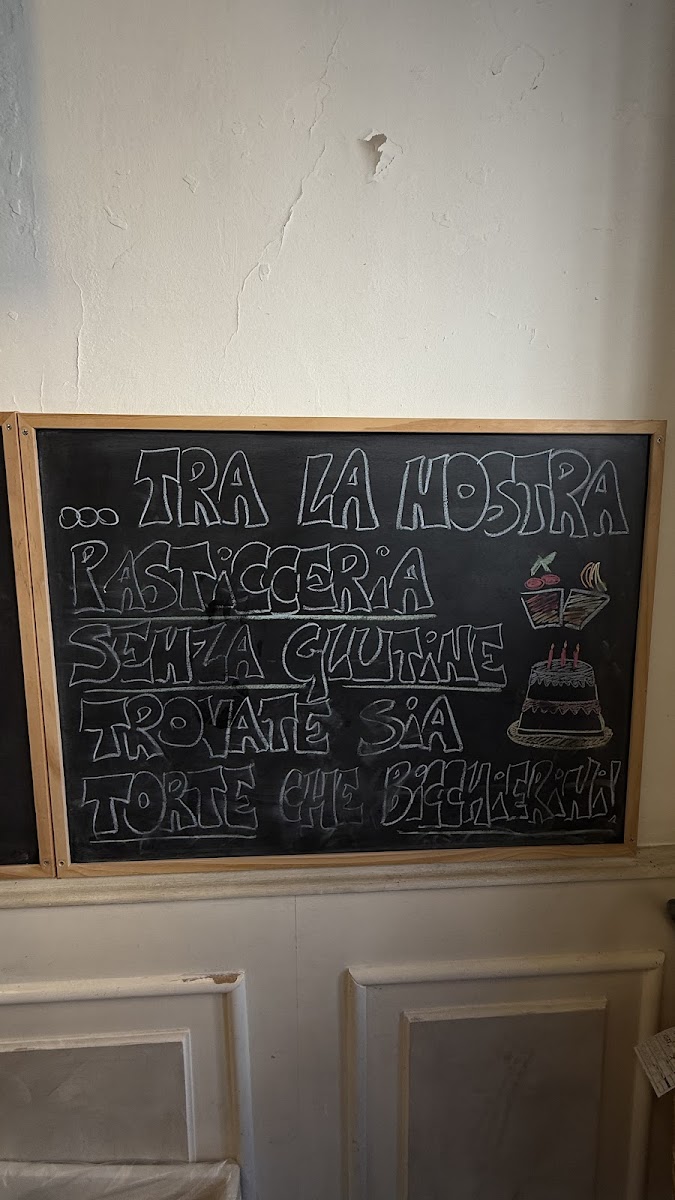 ... TRA LA NOSTRA
PASTiCCERiA
SENZA GLUTiNE
TROVATE SiA
TORTE CHE BiCCHiERiNi!